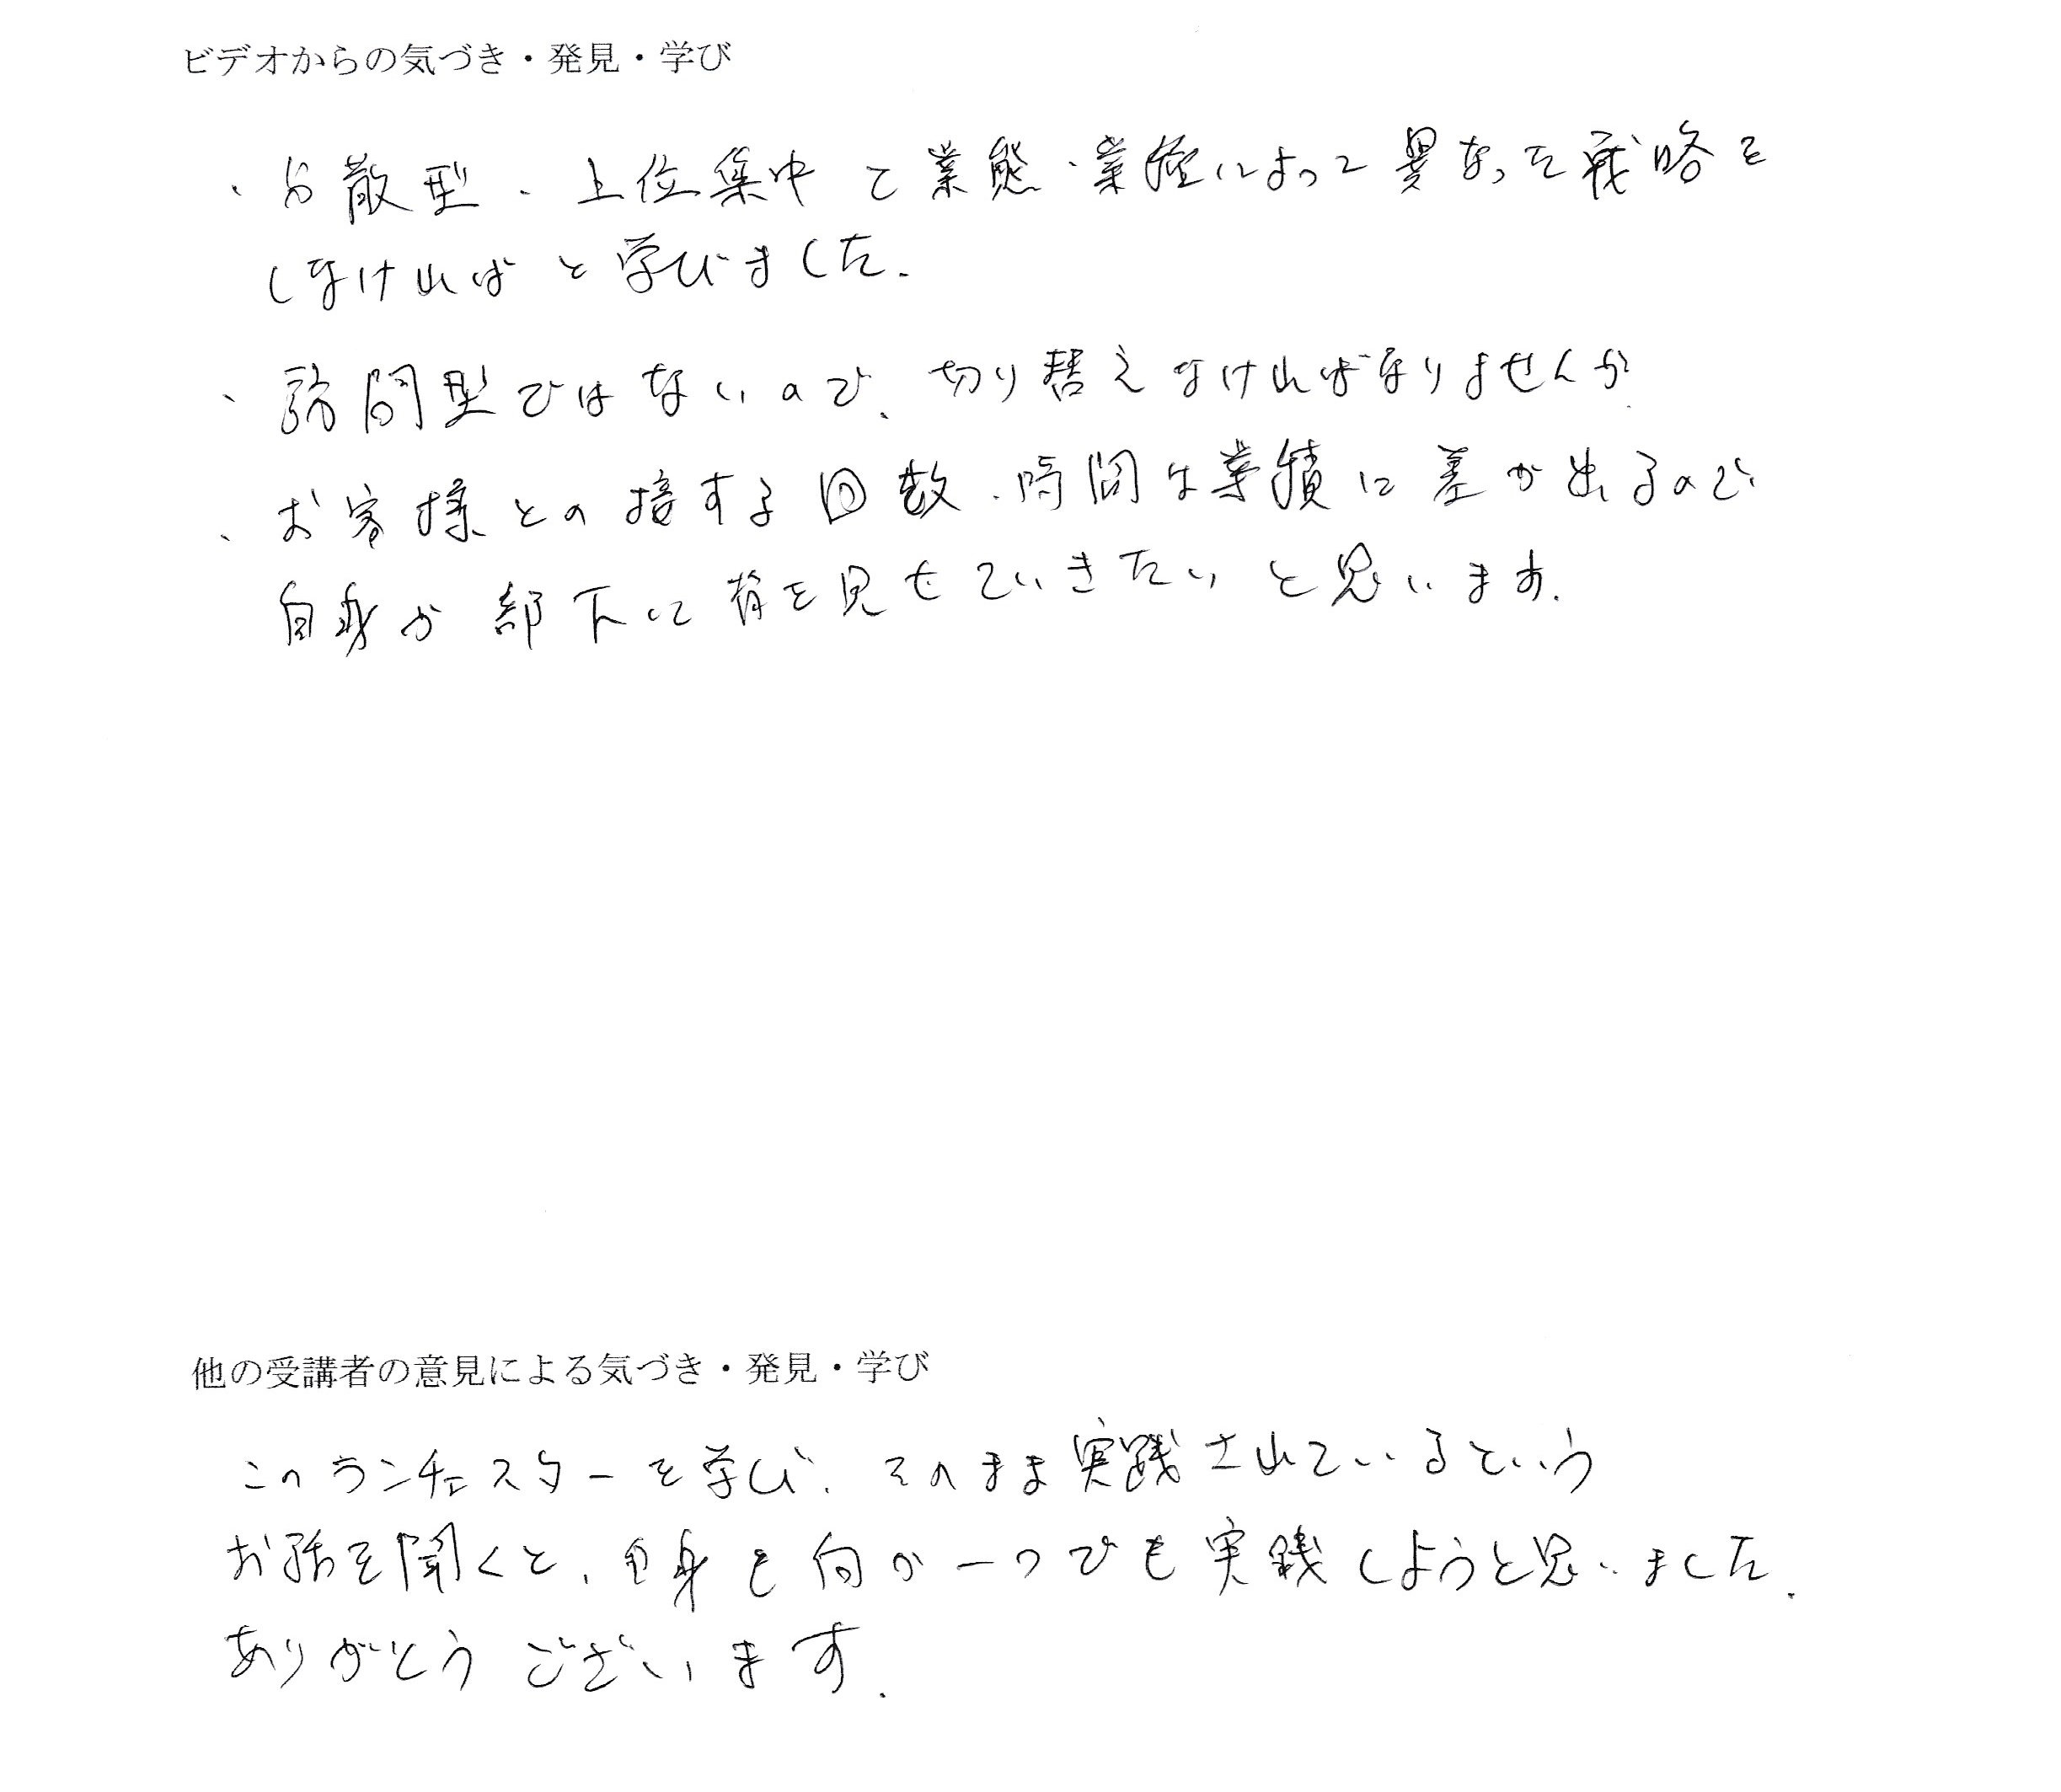 ビデオからの気づき・発見・学び
・分散型、上位集中と業態・業種によって異なった戦略を
しなければと学びました.
・訪問型ではないので、切り替えなければなりませんが
・お客様との接する回数、時間は業績に差が出るので
自身が部下に背を見せていきたいと思います.
他の受講者の意見による気づき・発見・学び
このランチェスターを学び、そのまま実践されているという
お話を聞くと、自身も何か一つでも実践しようと思いました.
ありがとうございます.